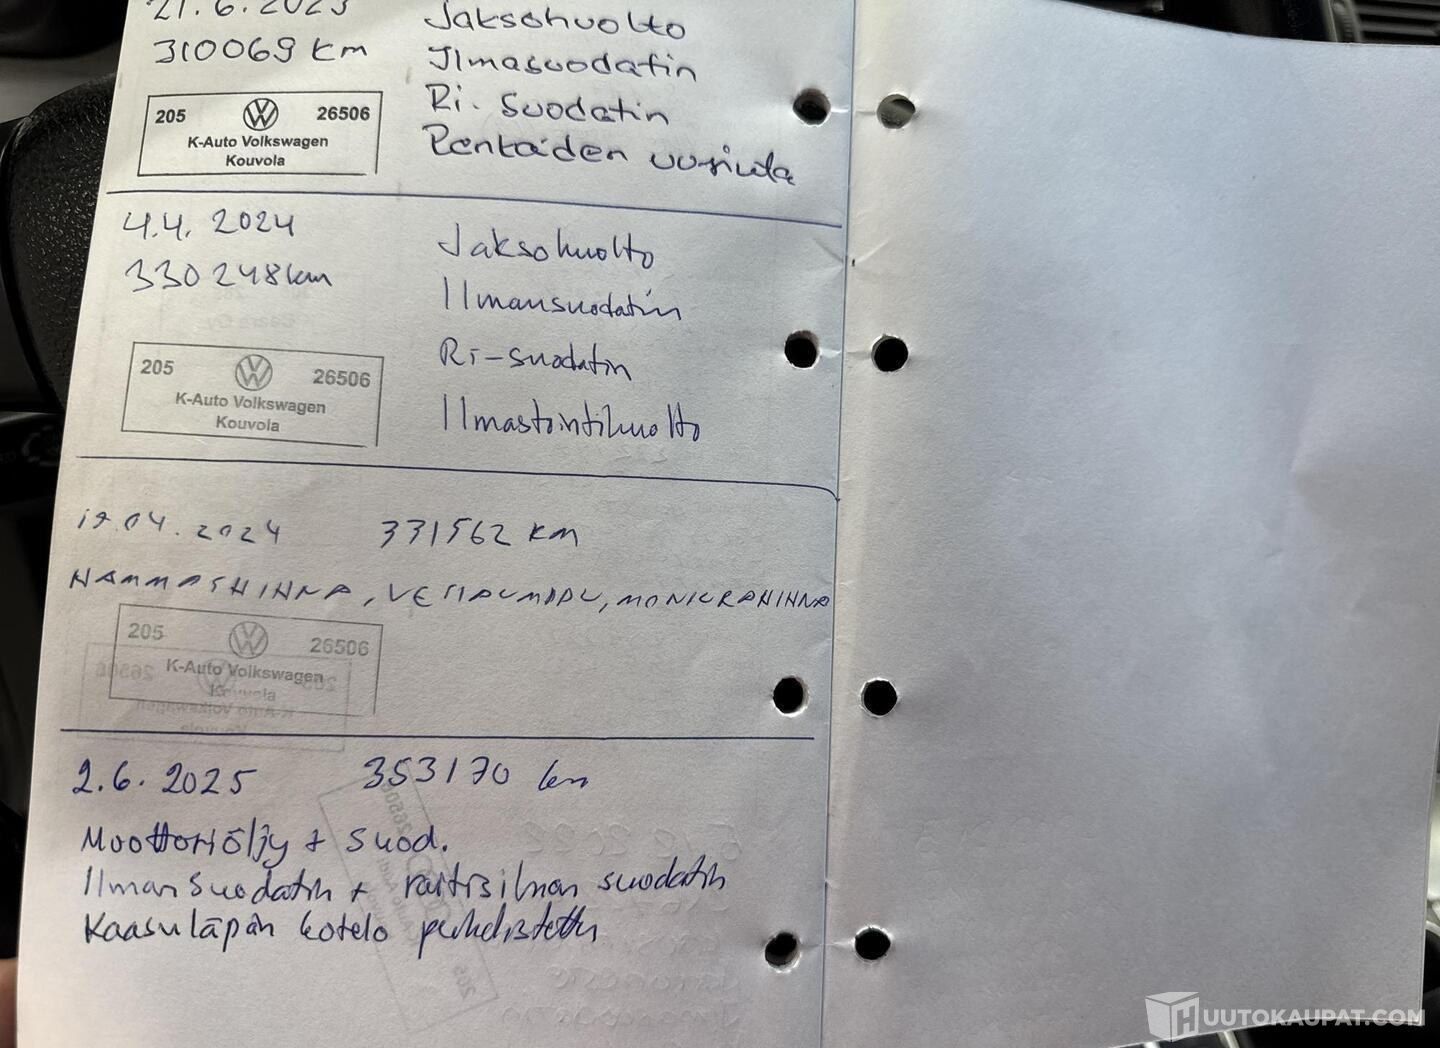 21.6.2023
310069 km
Jaksohuolto
Ilmasuodatin
Ri. Suodatin
Renkaiden uusinta
205 26506
K-Auto Volkswagen
Kouvola
4.4. 2024
330 248 km
Jaksohuolto
Ilmansuodatin
Ri-suodatin
Ilmastointihuolto
205 26506
K-Auto Volkswagen
Kouvola
19.04.2024 331562 km
HAMMASHIHNA, VESIPUMPPU, MONIURAHIHNA
205 26506
K-Auto Volkswagen
Kouvola
2.6. 2025 353170 km
Moottoriöljy + suod.
Ilmansuodatin + raitisilman suodatin
Kaasuläpän kotelo puhdistettu
HUUTOKAUPAT.COM